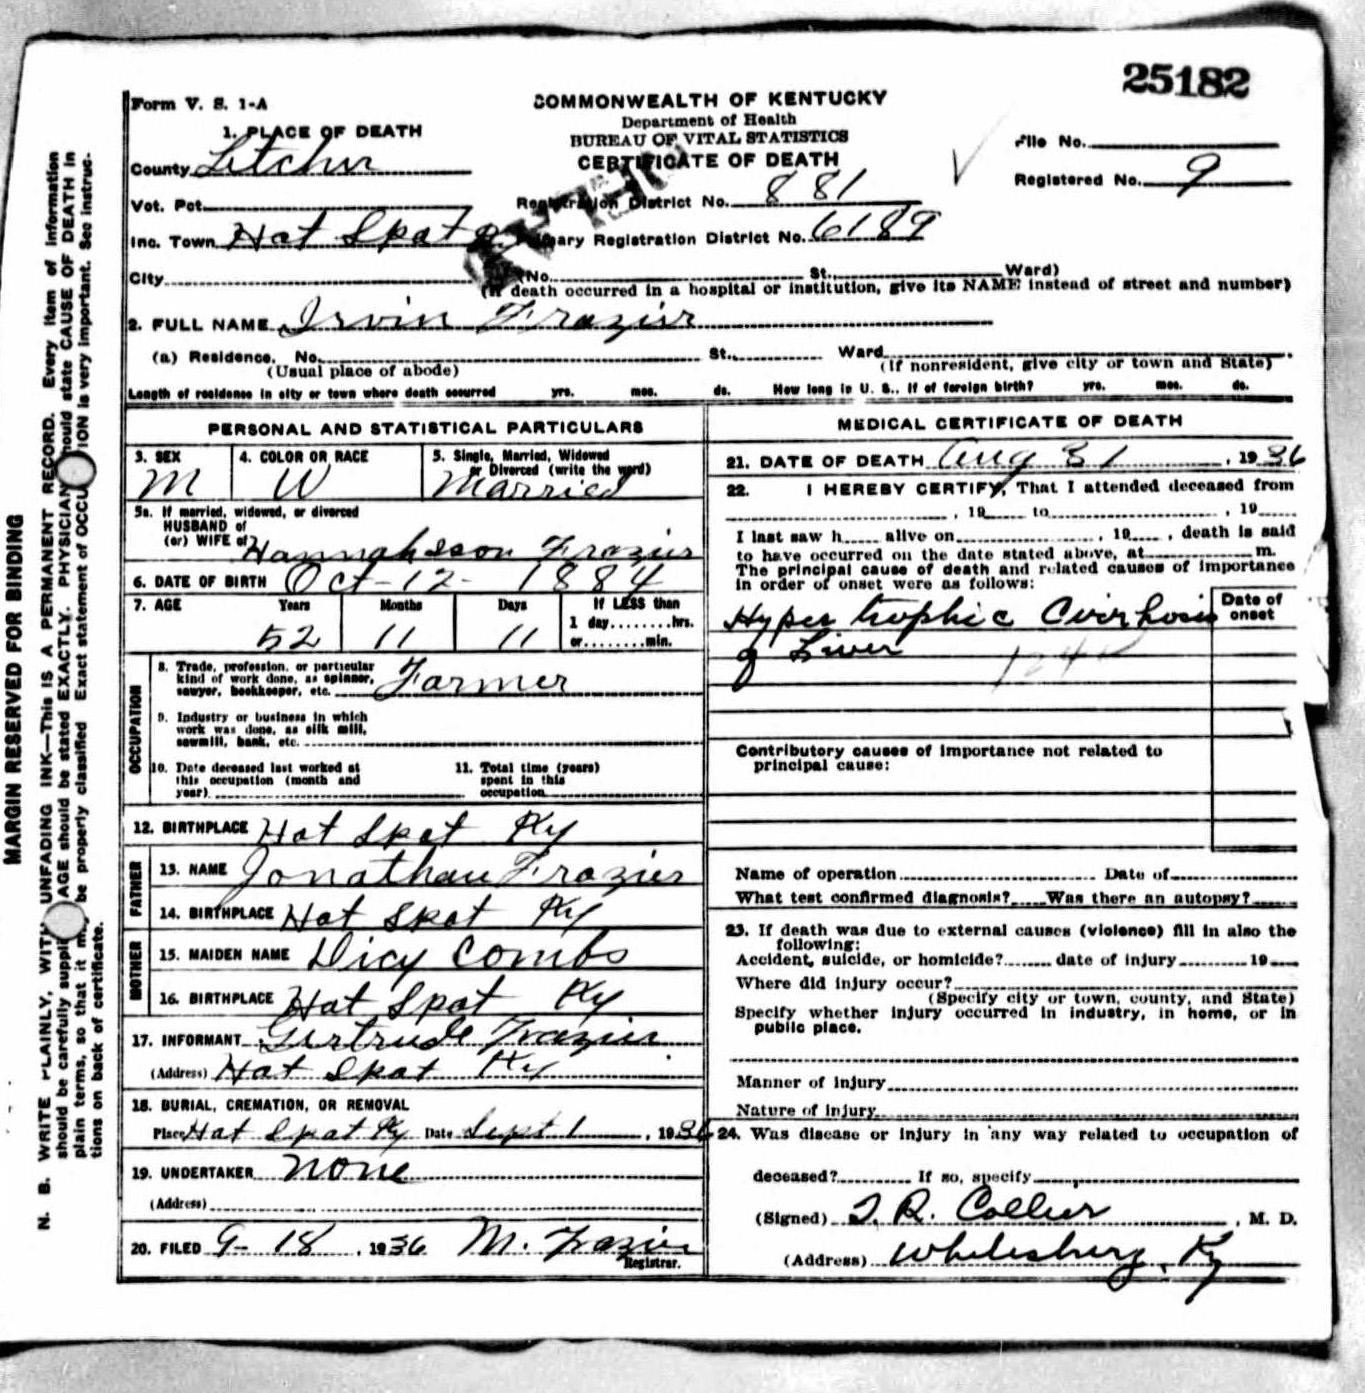 25182
Form V. S. 1-A
COMMONWEALTH OF KENTUCKY
Department of Health
BUREAU OF VITAL STATISTICS
CERTIFICATE OF DEATH
File No.
Registered No. 9
1. PLACE OF DEATH
County Letcher
Vot. Pct.
Registration District No. 881
Inc. Town Hot Spot
Primary Registration District No. 6189
City (No. St. Ward)
(If death occurred in a hospital or institution, give its NAME instead of street and number)
2. FULL NAME Irvin Frazier
(a) Residence. No. St. Ward
(Usual place of abode) (If nonresident, give city or town and State)
Length of residence in city or town where death occurred yrs. mos. ds. How long in U. S., if of foreign birth? yrs. mos. ds.
PERSONAL AND STATISTICAL PARTICULARS
3. SEX 4. COLOR OR RACE 5. Single, Married, Widowed
or Divorced (write the word)
M W Married
5a. If married, widowed, or divorced
HUSBAND of
(or) WIFE of Frazier
6. DATE OF BIRTH Oct-12-1884
7. AGE Years Months Days If LESS than
1 day........hrs.
52 11 11 or........min.
OCCUPATION
8. Trade, profession, or particular
kind of work done, as spinner,
sawyer, bookkeeper, etc. Farmer
9. Industry or business in which
work was done, as silk mill,
sawmill, bank, etc.
10. Date deceased last worked at
this occupation (month and
year)
11. Total time (years)
spent in this
occupation
12. BIRTHPLACE Hot Spot Ky
FATHER
13. NAME Jonathan Frazier
14. BIRTHPLACE Hot Spot Ky
MOTHER
15. MAIDEN NAME Dicy Combs
16. BIRTHPLACE Hot Spot Ky
17. INFORMANT Gertrude Frazier
(Address) Hot Spot Ky
18. BURIAL, CREMATION, OR REMOVAL
Place Hot Spot Ky Date Sept 1, 1936
19. UNDERTAKER none
(Address)
20. FILED 9-18, 1936 M. Frazier
Registrar.
MEDICAL CERTIFICATE OF DEATH
21. DATE OF DEATH Aug 31, 1936
22. I HEREBY CERTIFY, That I attended deceased from
, 19 to , 19
I last saw h alive on , 19 , death is said
to have occurred on the date stated above, at m.
The principal cause of death and related causes of importance
in order of onset were as follows:
Date of
onset
Hypertrophic Cirrhosis
of Liver
Contributory causes of importance not related to
principal cause:
Name of operation Date of
What test confirmed diagnosis? Was there an autopsy?
23. If death was due to external causes (violence) fill in also the
following:
Accident, suicide, or homicide? date of injury 19
Where did injury occur?
(Specify city or town, county, and State)
Specify whether injury occurred in industry, in home, or in
public place.
Manner of injury
Nature of injury
24. Was disease or injury in any way related to occupation of
deceased? If so, specify
(Signed) Collier, M. D.
(Address) Whitesburg, Ky
MARGIN RESERVED FOR BINDING
N. B. WRITE PLAINLY, WITH UNFADING INK—This is A PERMANENT RECORD. Every item of information
should be carefully supplied. AGE should be stated EXACTLY. PHYSICIANS should state CAUSE OF DEATH in
plain terms, so that it may be properly classified. Exact statement of OCCUPATION is very important. See instruc-
tions on back of certificate.